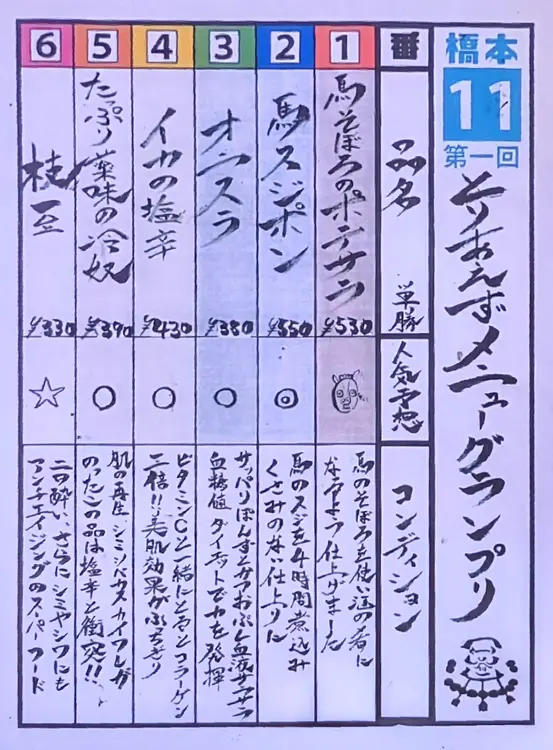 橋本
11
第一回
とりあえずメニューグランプリ
番
品名
単勝
人気予想
コンディション
1
馬そぼろのポテサラ
¥530
馬のそぼろを使い酒の肴に
なるよう仕上げました
2
馬スジポン
¥550
◎
馬のスジを4時間煮込み
くさみのない仕上りに
3
オニスラ
¥380
○
サッパリぽんずとかつおぶし血液サラサラ
血糖値ダイエットで力を発揮
4
イカの塩辛
¥430
○
ビタミンCと一緒にとるとコラーゲン
二倍!!美肌効果がぶっちぎり
5
たっぷり薬味の冷奴
¥390
○
肌の再生、シミ、ソバカス、カイワレガ
のったこの品は塩辛と衝突!!
6
枝豆
¥330
☆
二日酔い、さらにシミやシワにも
アンチエイジングのスーパーフード